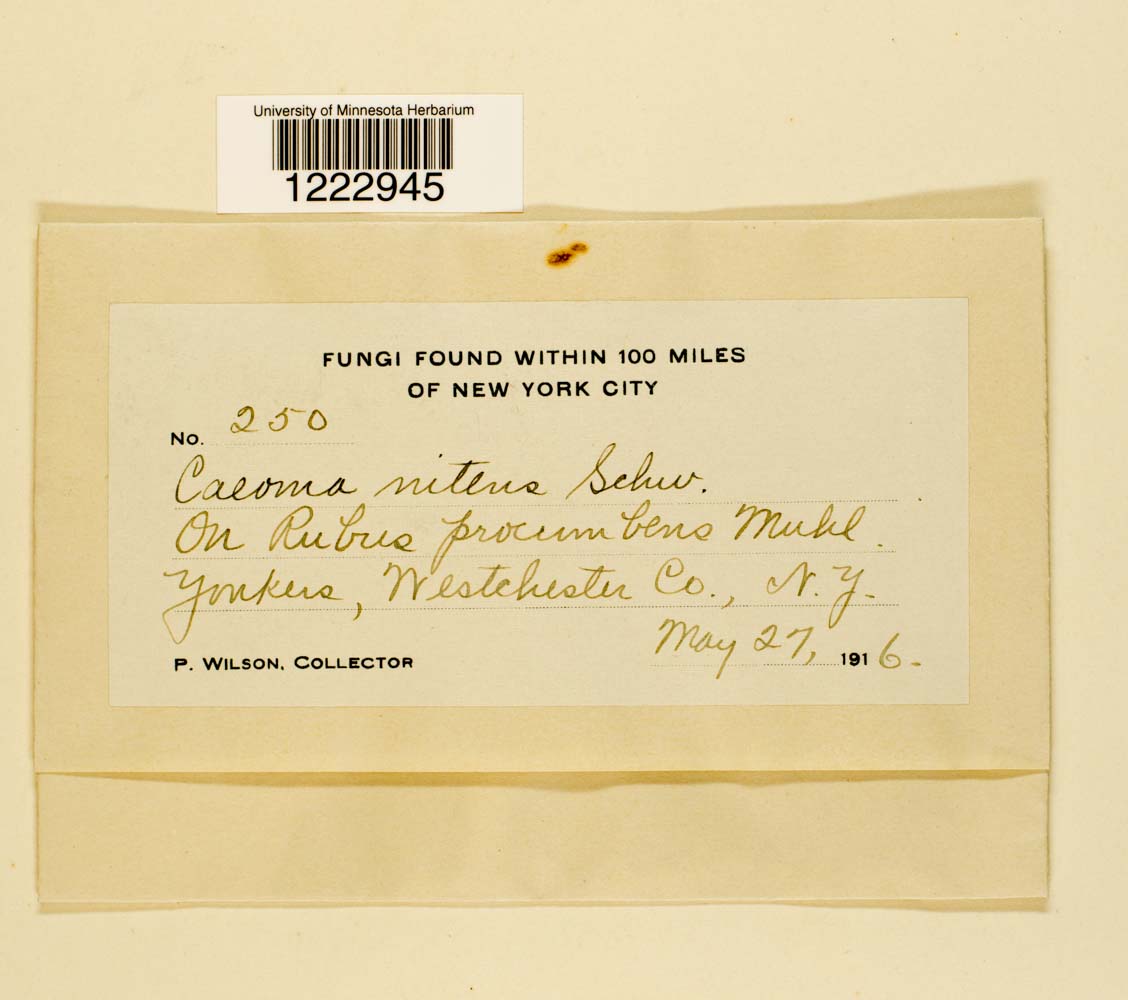 University of Minnesota Herbarium
1222945
FUNGI FOUND WITHIN 100 MILES
OF NEW YORK CITY
No. 250
Caeoma nitens Schw.
On Rubus procumbens Muhl.
Yonkers, Westchester Co., N. Y.
May 27, 1916.
P. WILSON, COLLECTOR